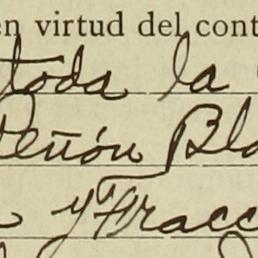 en virtud del cont
toda la
Peñón Bla
y Fracc